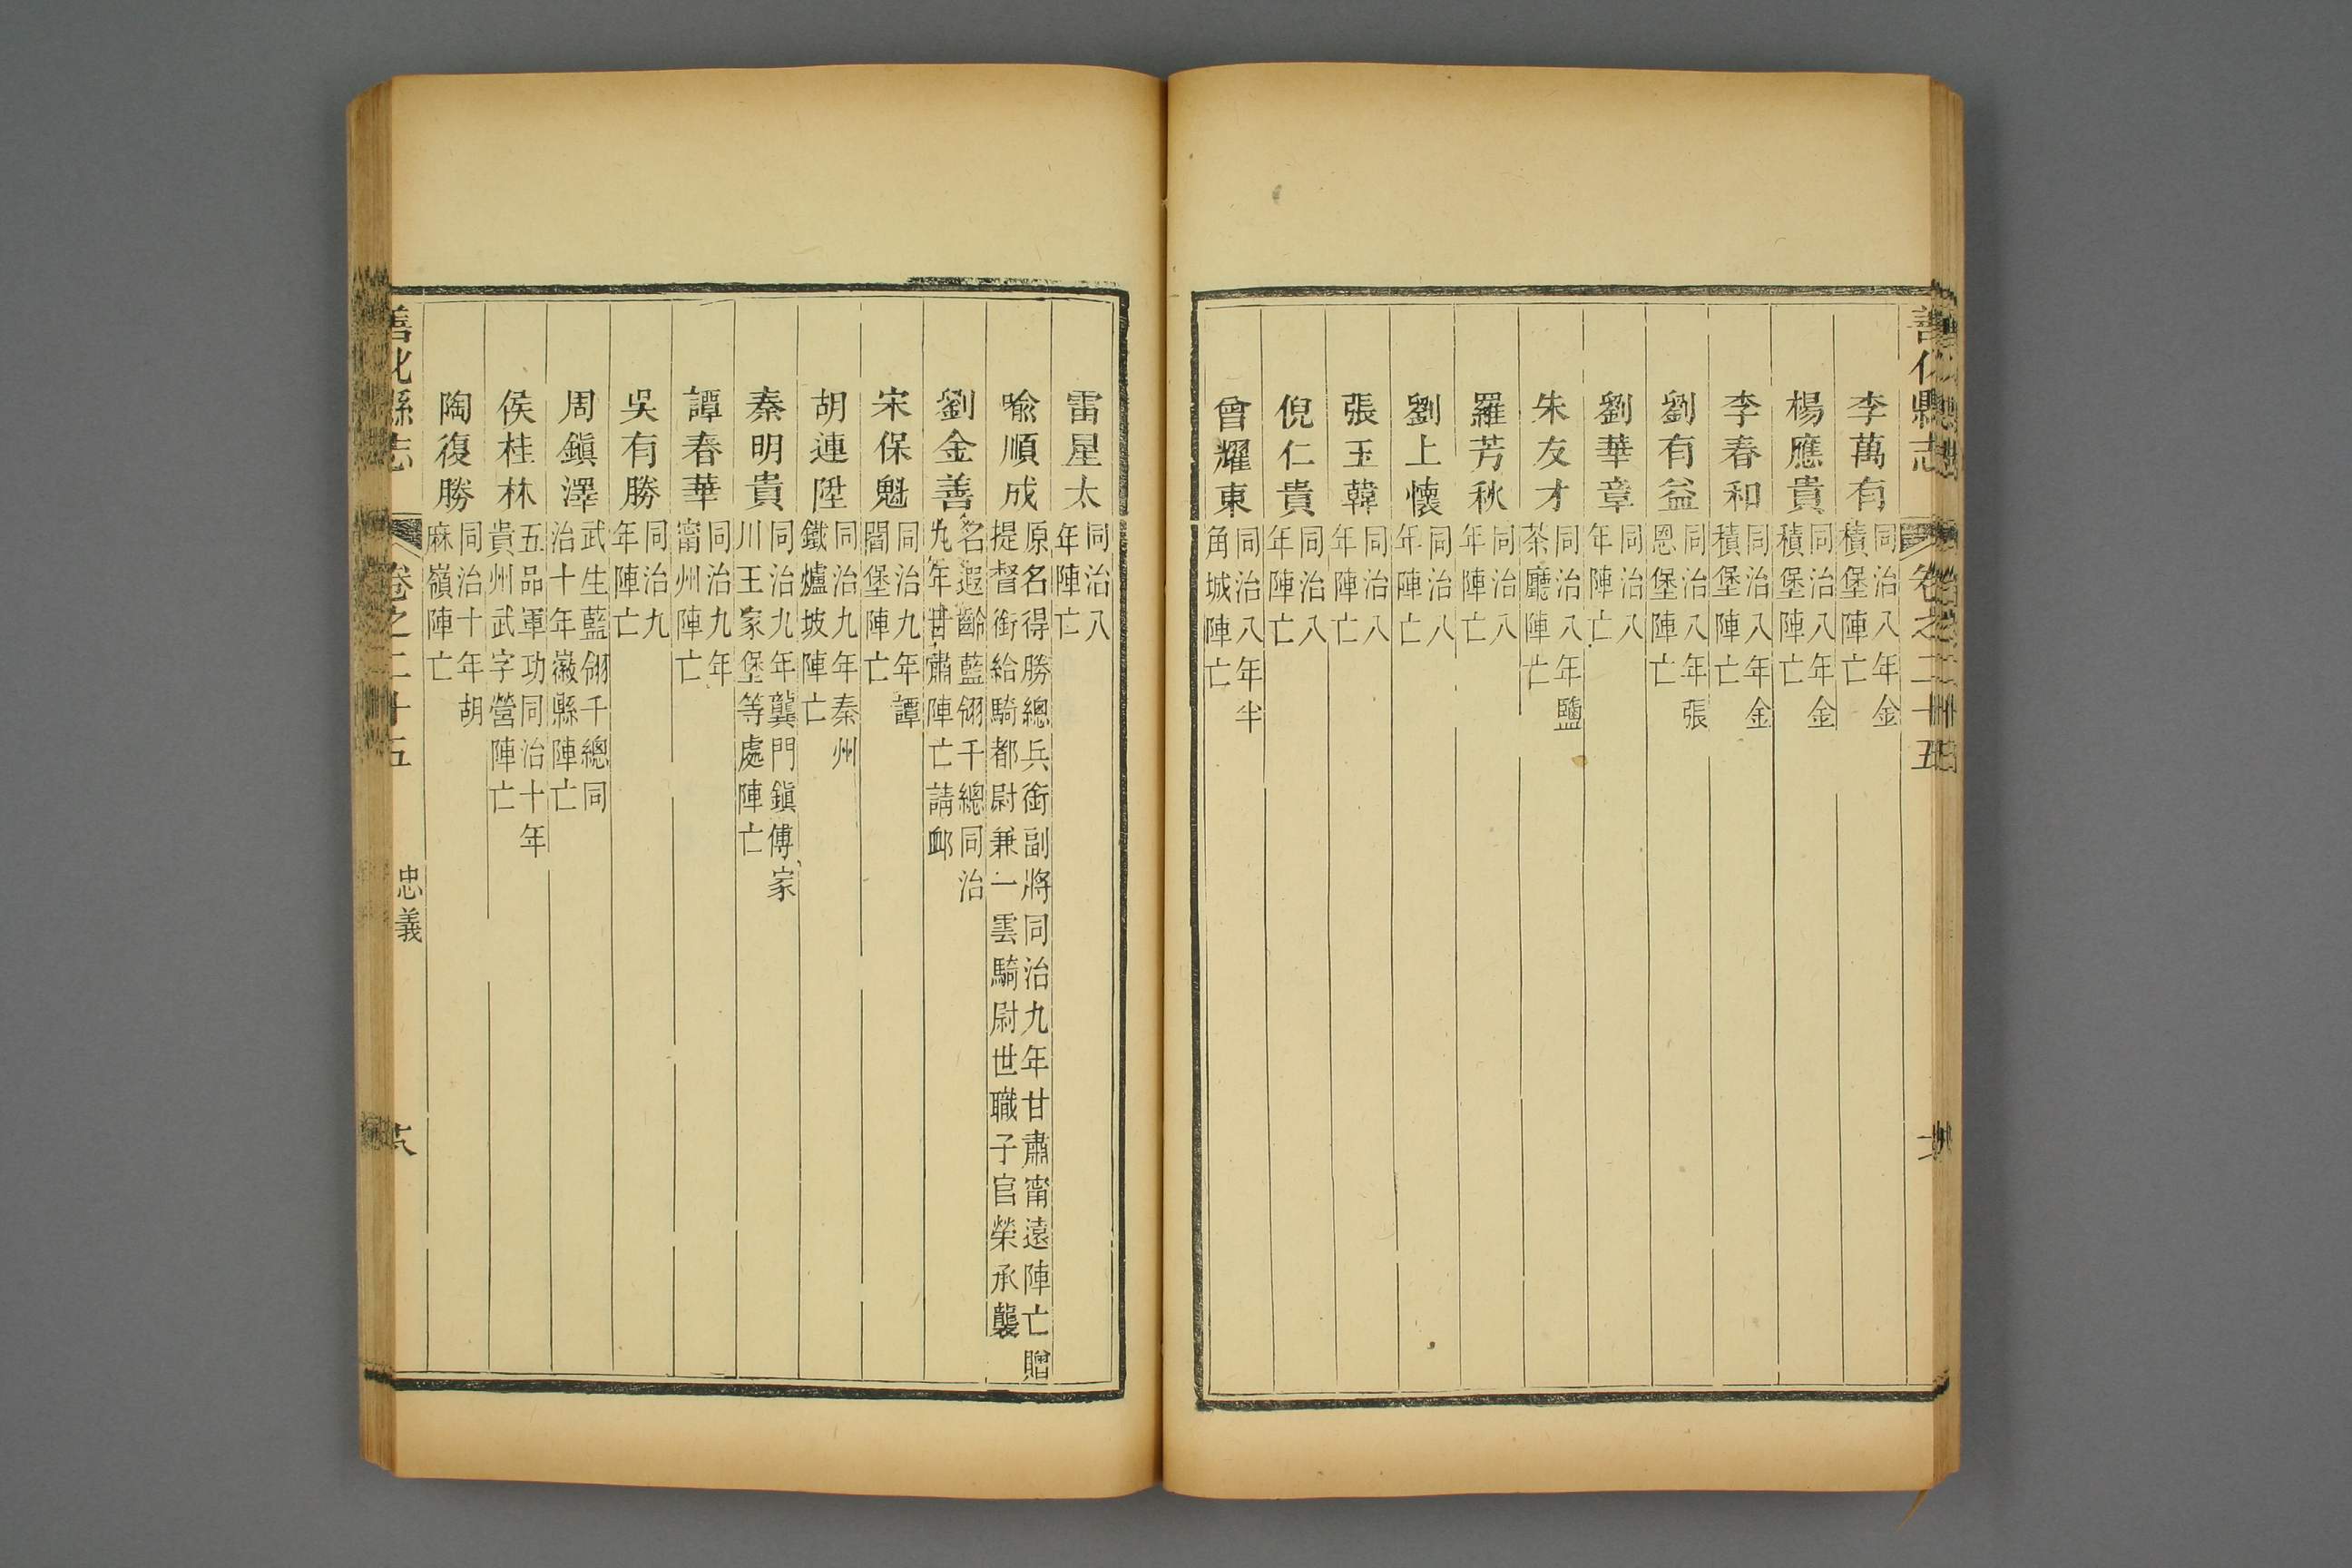 善化縣志
卷之二十五
李萬有 同治八年金積堡陣亡
楊應貴 同治八年金積堡陣亡
李春和 同治八年金積堡陣亡
劉有益 同治八年張恩堡陣亡
劉華章 同治八年陣亡
朱友才 同治八年鹽茶廳陣亡
羅芳秋 同治八年陣亡
劉上懷 同治八年陣亡
張玉韓 同治八年陣亡
倪仁貴 同治八年陣亡
曾耀東 同治八年半角城陣亡
雷星太 同治八年陣亡
喻順成 原名得勝總兵銜副將同治九年甘肅甯遠陣亡贈提督銜給騎都尉兼一雲騎尉世職子官榮承襲
劉金善 名遐齡藍翎千總同治九年甘肅陣亡請卹
宋保魁 同治九年譚閻堡陣亡
胡連陞 同治九年秦州鐵爐坡陣亡
秦明貴 同治九年龔門鎭傅家川王家堡等處陣亡
譚春華 同治九年甯州陣亡
吳有勝 同治九年陣亡
周鎭澤 武生藍翎千總同治十年徽縣陣亡
侯桂林 五品軍功同治十年貴州武字營陣亡
陶復勝 同治十年胡麻嶺陣亡
善化縣志
卷之二十五
忠義